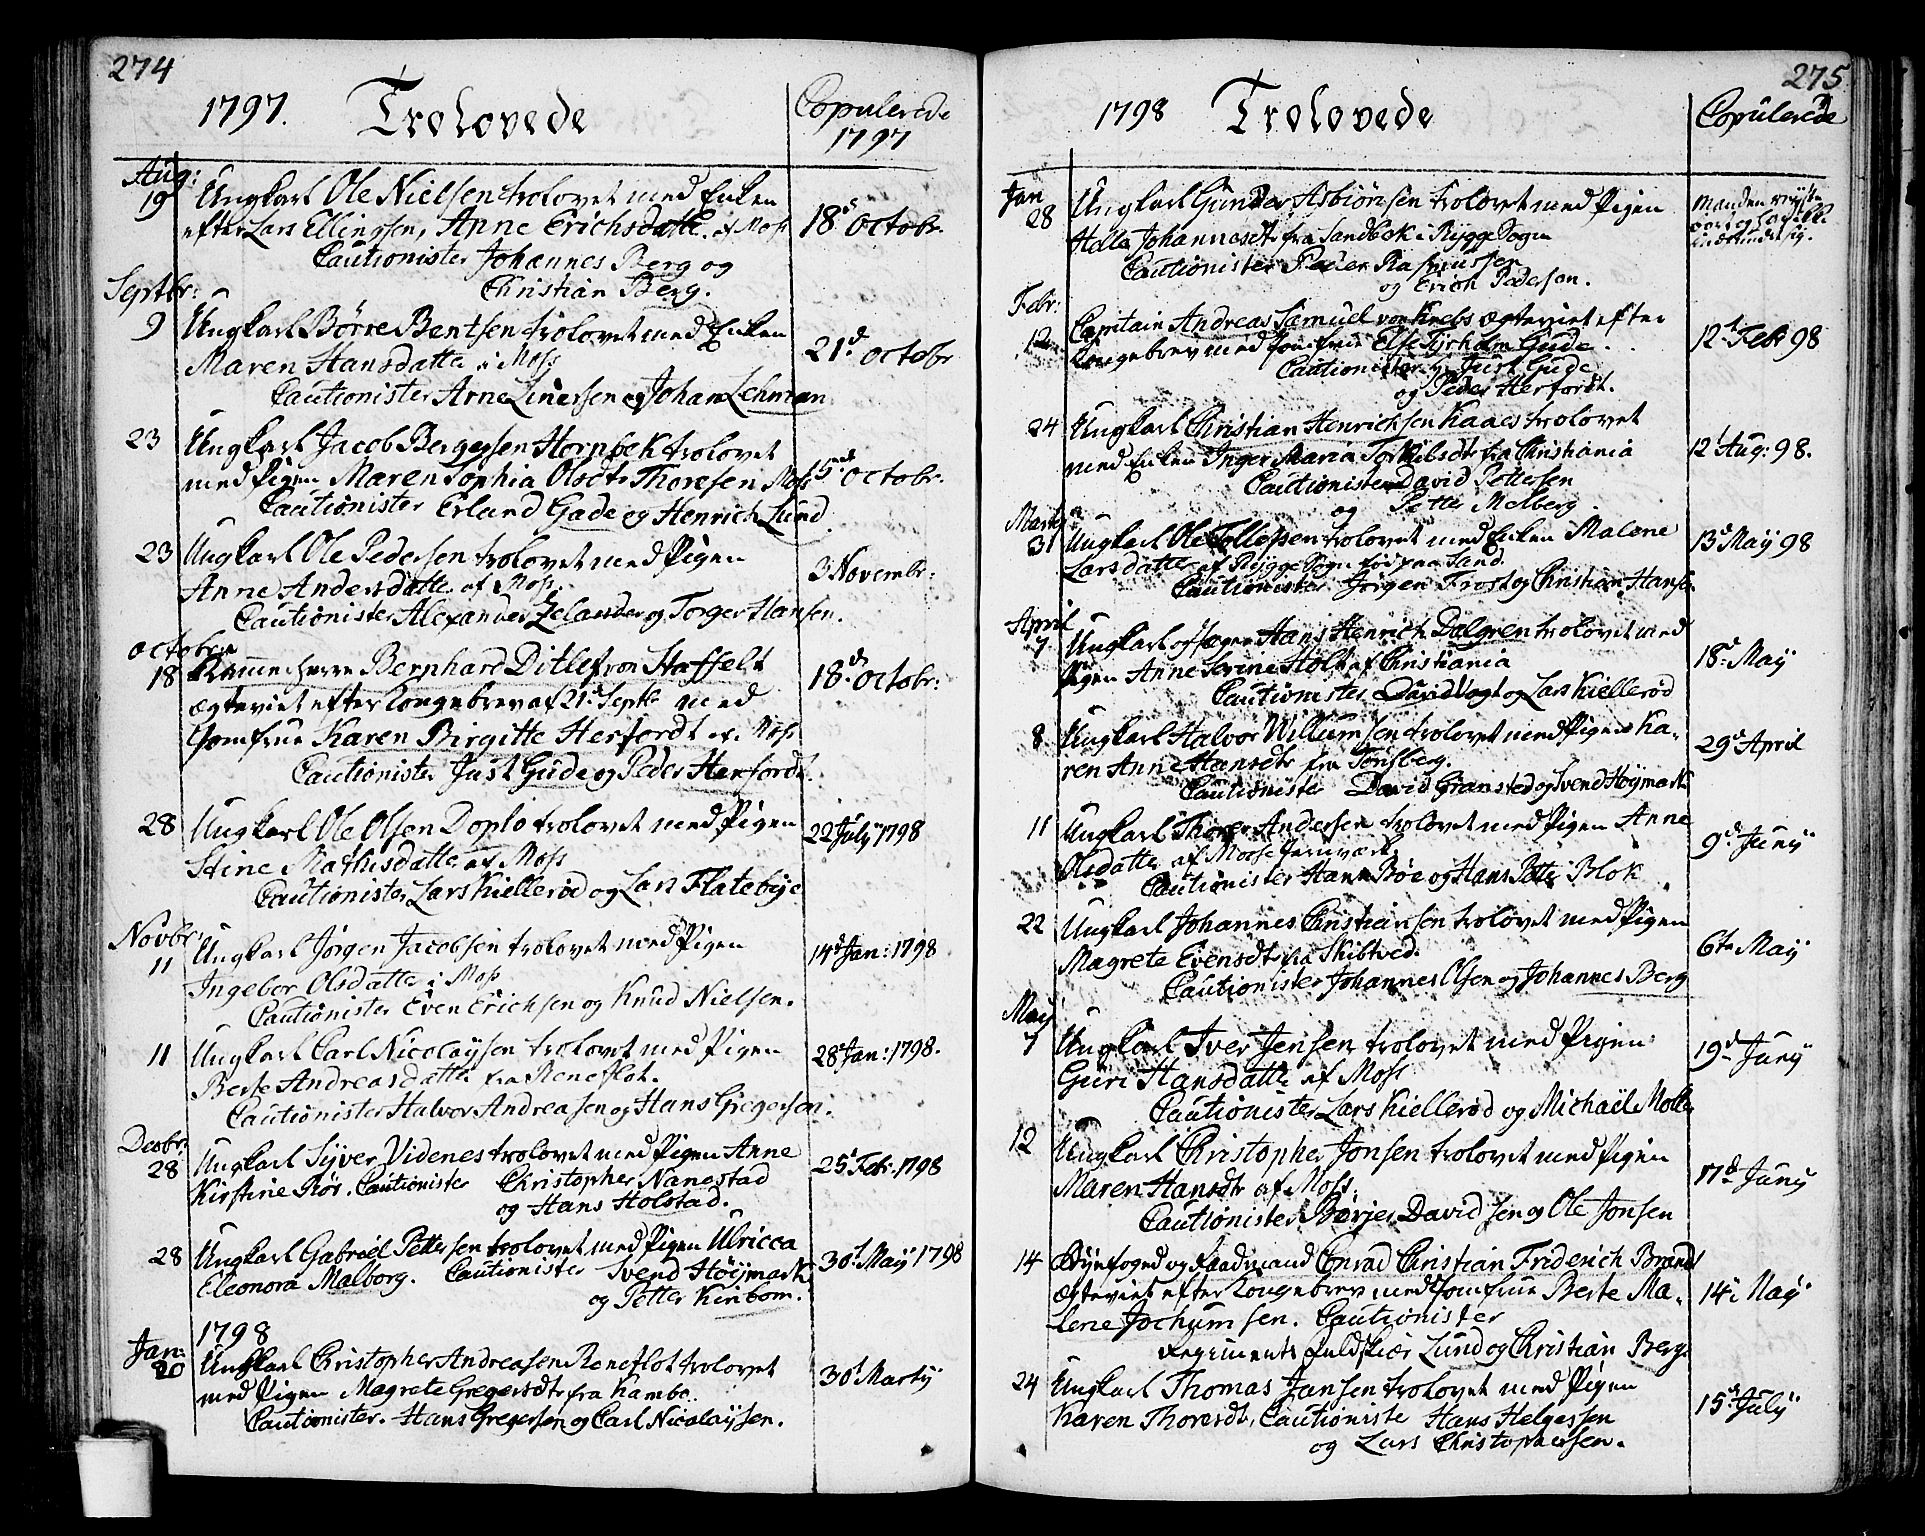 274
1797. Trolovede Copulerede
1797
Aug:
19 Ungkarl Ole Nielsen trolovet med Enken
efter Lars Ellingsen, Anne Erichsdatte. af Moss 18d Octobr.
Cautionister Johannes Berg og
Christian Berg.
Septbr:
9 Ungkarl Börre Bentsen trolovet med Enken
Maren Hansdatte i Moss 21d. octobr
Cautionister Arne Linersen og Johan Lehman
23 Ungkarl Jacob Bergersen Hornbek trolovet
med Pigen Maren Sophia Olsdtr Thoresen Moss 15de octobr.
Cautionister Erland Gade og Henrich Lund
23 Ungkarl Ole Pedersen trolovet med Pigen
Anne Andersdatte af Moss. 3 Novembr:
Cautionister Alexander Zelander og Torger Hansen.
octobr
18 Kammerherre Bernhard Ditlef von Staffelt 18de. octobr:
ægteviet efter Kongebrev af 21d Septbr med
Jomfrue Karen Birgitte Herfordt af Moss
Cautionister Just Gude og Peder Herfordt.
28 Ungkarl Ole Olsen Doplo trolovet med Pigen 22 July 1798
Stine Mathisdatte af Moss
Cautionister Lars Kiellerød og Lars Flatebye
Novbr
11 Ungkarl Jørgen Jacobsen trolovet med Pigen 14d Jan: 1798
Ingebor Olsdatte i Moss
Cautionister Even Erichsen og Knud Nielsen.
11 Ungkarl Carl Nicolaysen trolovet med Pigen 28d Jan: 1798.
Berte Andreasdatte fra Reneflot.
Cautionister Halvor Andreasen og Hans Gregersen.
Decbr:
28 Ungkarl Syver Videnes trolovet med Pigen Anne 25d Feb: 1798
Kirstine Rör. Cautionister Christopher Nanestad
og Hans Holstad.
28 Ungkarl Gabriel Pettersen trolovet med Pigen Ulricca 30t May 1798
Eleonora Malborg. Cautionister Svend Höymark
og Petter Kinbom.
1798
Jan:
20 Ungkarl Christopher Andreasen Reneflot trolovet 30t Marty
med Pigen Magrete Gregersdtr fra Kambo.
Cautionister. Hans Gregersen og Carl Nicolaysen.
275
1798 Trolovede Copulerede
Jan
28 Ungkarl Gunder Asbiörnsen trolovet med Pigen Manden reyste
Helle Johannesdtr fra Sandbek i Rygge Sogn
Cautionister Peder Rasmussen
og Erich Pedersen.
Febr:
12 Capitain Andreas Samuel von Krebs ægteviet efter 12t Feb 98
Kongebrev med Jomfrue Else Tyrholm Gude.
Cautionister Just Gude
og Peder Herfordt.
24 Ungkarl Christian Henrichsen Kaaes trolovet
med Enken Inger Maria Torkilsdtr fra Christiania 12t Aug: 98.
Cautionister David Pettersen
og Petter Melberg
Marty
31 Ungkarl Ole Tollefsen trolovet med Enken Malene 13d May 98
Larsdatte af Rygge Sogn paa Sand.
Cautionister Jørgen Frost og Christian Hansen
April
7 Ungkarl Hans Henrich Dalgren trolovet med
Pigen Anne Serine Holt af Christiania 18d May
Cautionister David Vogt og Lars Kiellerød
8 Ungkarl Halvor Willumsen trolovet med Pigen Ka-
ren Anne Hansdtr fra Tønsberg. 29d April
Cautionister David Gransted og Svend Höymark
11 Ungkarl Thorer Andersen trolovet med Pigen Anne
Olsdatte af Mosse Jernværk 9d Juny
Cautionister Hans Böe og Hans Petter Blok
22 Ungkarl Johannes Christiansen trolovet med Pigen
Magrete Evensdtr fra Skibtved. 6te May
Cautionister Johannes Olsen og Johannes Berg
May
7 Ungkarl Iver Jensen trolovet med Pigen 19d Juny
Guri Hansdatte af Moss
Cautionister Lars Kiellerød og Michael Moller
12 Ungkarl Christopher Jonsen trolovet med Pigen 17d Juny
Maren Hansdtr af Moss.
Cautionister Börjer Davidsen og Ole Jonsen
14 Byefoged og Raadmand Conrad Christian Friderich Brandt
ægteviet efter Kongebrev med Jomfrue Berte Ma- 14d May
lene Jochumsen. Cautionister
Regiments Feldskiær Lund og Christian Berg.
24 Ungkarl Thomas Jansen trolovet med Pigen 15d July
Karen Thorersdtr, Cautioniste Hans Helgessen
og Lars Christophersen.